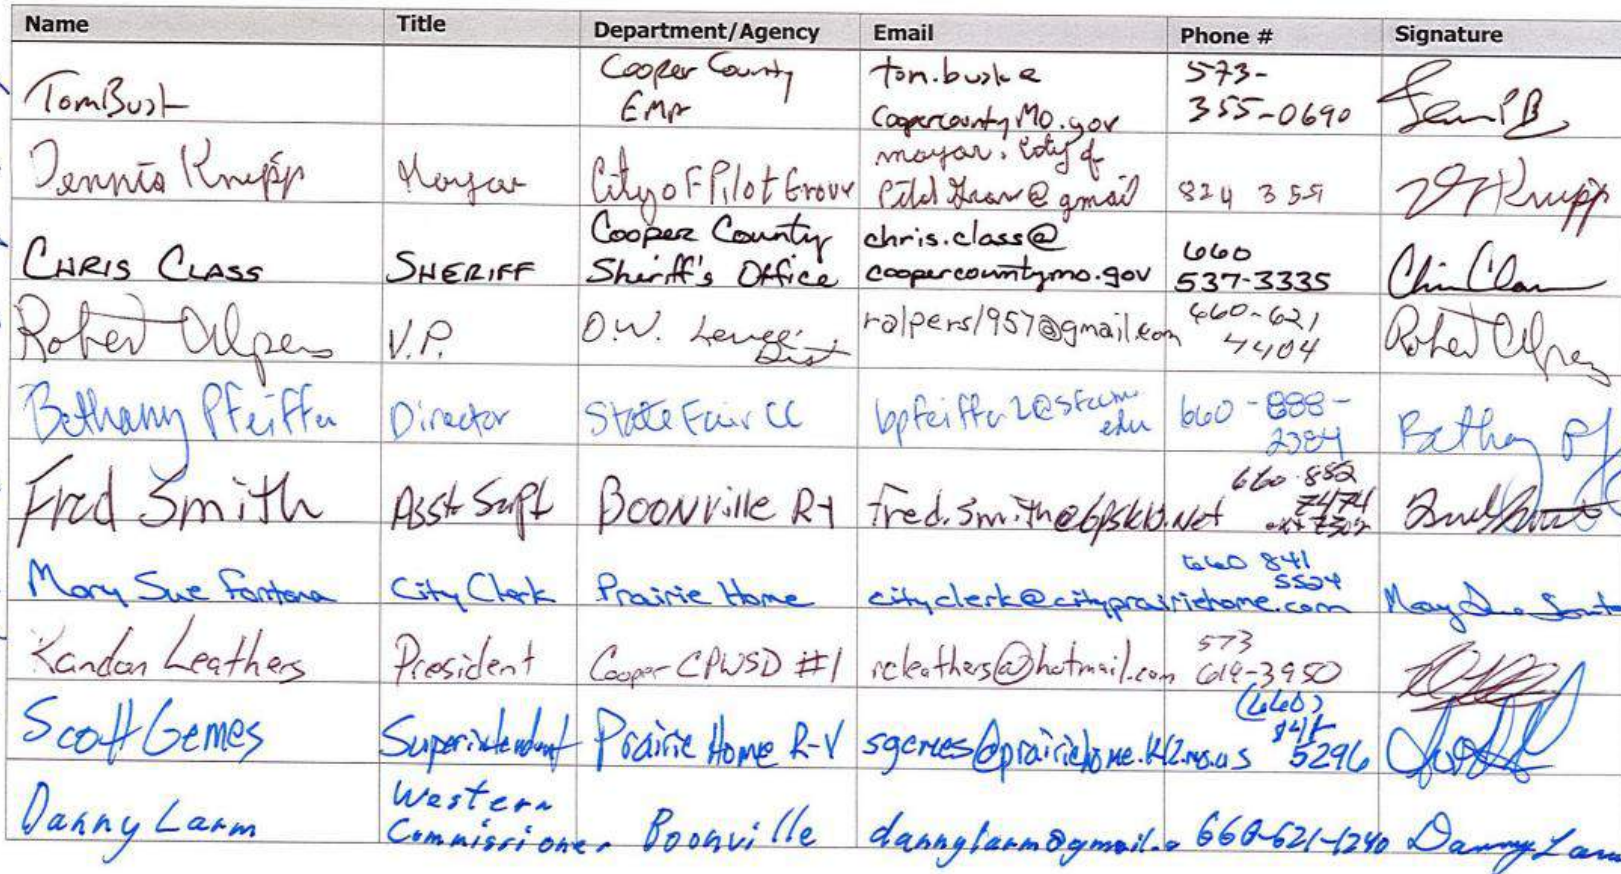 Name Title Department/Agency Email Phone # Signature
Tom Bush Cooper County EMA tom.bush@coopercountyMO.gov 573-355-0690
Dennis Knipp Mayor City of Pilot Grove mayor.cityofpilotgrove@gmail 824 359 D Knipp
CHRIS CLASS SHERIFF Cooper County Sheriff's Office chris.class@coopercountymo.gov 660 537-3335 Chris Class
Robert Alpers V.P. O.W. Levee Dist ralpers1957@gmail.com 660-621 4404 Robert Alpers
Bethany Pfeiffer Director State Fair CC bpfeiffer2@sfccmo.edu 660-888-2384 Bethany Pf
Fred Smith Asst Supt Boonville R-1 fred.smith@bpsk12.net 660-882 7474 Fred Smith
Mary Sue Fontana City Clerk Prairie Home cityclerk@cityprairiehome.com 660 841 5524 Mary Sue
Randan Leathers President Cooper CPWSD #1 rcleathers@hotmail.com 573 619-3950
Scott Gemes Superintendent Prairie Home R-V sgemes@prairiehome.k12.mo.us (660) 841 5296
Danny Larm Western Commissioner Boonville dannylarm@gmail. 660-621-1240 Danny Larm